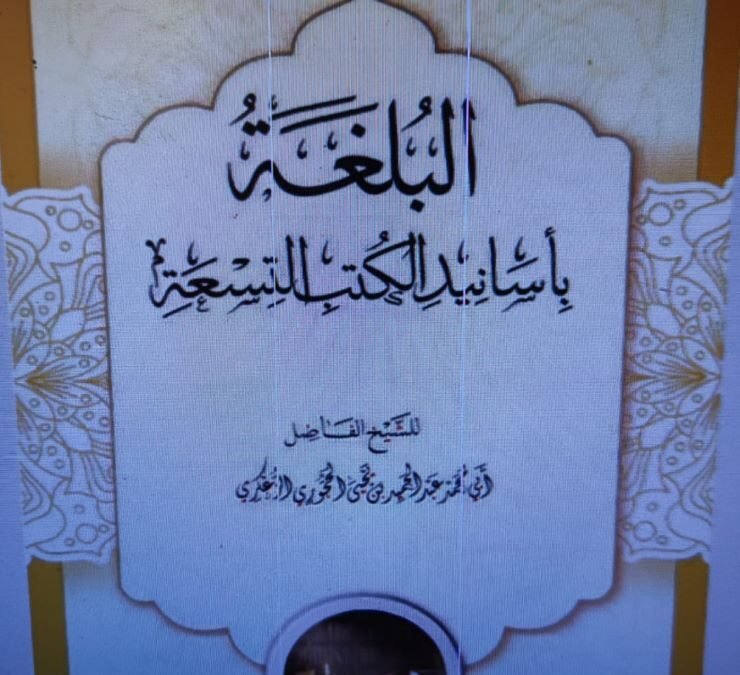 البُلغَةُ
بِأَسَانِيدِ الكُتبِ التِسْعَةِ
للشَّيْخِ الفَاضِل
أبي محمد عبد الحميد بن يحيى الحجوري الزعكري